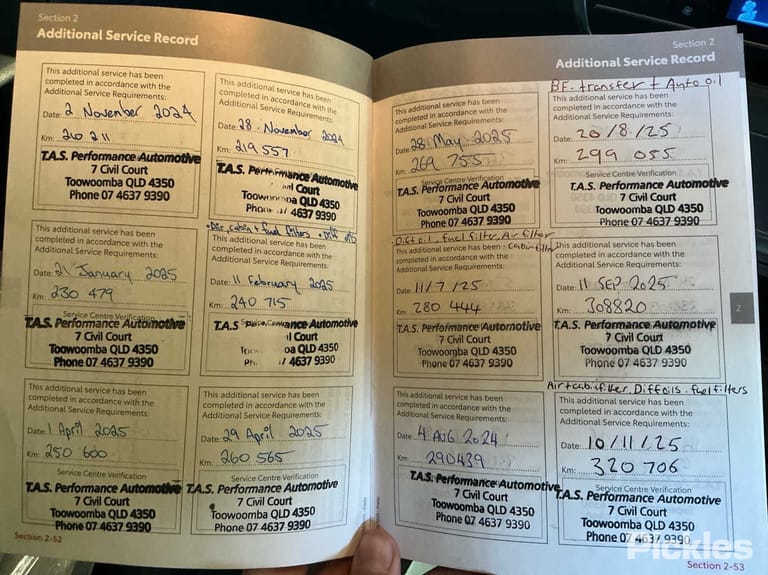 Section 2
Additional Service Record
This additional service has been
completed in accordance with the
Additional Service Requirements:
Date: 2 November 2024
Km: 210 211
T.A.S. Performance Automotive
7 Civil Court
Toowoomba QLD 4350
Phone 07 4637 9390
This additional service has been
completed in accordance with the
Additional Service Requirements:
Date: 28 November 2024
Km: 219 557
T.A.S. Performance Automotive
Court
Toowoomba QLD 4350
4637 9390
This additional service has been
completed in accordance with the
Additional Service Requirements:
Date: 21 January 2025
Km: 230 479
Service Centre Verification
T.A.S. Performance Automotive
7 Civil Court
Toowoomba QLD 4350
Phone 07 4637 9390
Air, cabin + fuel filters + Diff oils
This additional service has been
completed in accordance with the
Additional Service Requirements:
Date: 11 February 2025
Km: 240 715
T.A.S Performance Automotive
Court
QLD 4350
4637 9390
This additional service has been
completed in accordance with the
Additional Service Requirements:
Date: 1 April 2025
Km: 250 600
Service Centre Verification
T.A.S. Performance Automotive
7 Civil Court
Toowoomba QLD 4350
Phone 07 4637 9390
This additional service has been
completed in accordance with the
Additional Service Requirements:
Date: 29 April 2025
Km: 260 565
Service Centre Verification
T.A.S. Performance Automotive
7 Civil Court
Toowoomba QLD 4350
Phone 07 4637 9390
Section 2-52
Section 2
Additional Service Record
This additional service has been
completed in accordance with the
Additional Service Requirements:
Date: 28 May 2025
Km: 269 755
Service Centre Verification
T.A.S. Performance Automotive
7 Civil Court
Toowoomba QLD 4350
Phone 07 4637 9390
BF. transfer + Auto oil
This additional service has been
completed in accordance with the
Additional Service Requirements:
Date: 20/8/25
Km: 299 055
Service Centre Verification
T.A.S. Performance Automotive
7 Civil Court
Toowoomba QLD 4350
Phone 07 4637 9390
Diff oil, fuel filter, Air filter
- Cabin filter
This additional service has been
completed in accordance with the
Additional Service Requirements:
Date: 11/7/25
Km: 280 444
T.A.S. Performance Automotive
7 Civil Court
Toowoomba QLD 4350
Phone 07 4637 9390
This additional service has been
completed in accordance with the
Additional Service Requirements:
Date: 11 SEP 2025
Km: 308820
T.A.S. Performance Automotive
7 Civil Court
Toowoomba QLD 4350
Phone 07 4637 9390
2
This additional service has been
completed in accordance with the
Additional Service Requirements:
Date: 4 AUG 2024
Km: 290439
T.A.S. Performance Automotive
7 Civil Court
Toowoomba QLD 4350
Phone 07 4637 9390
Air + cabin filter, Diff oils. fuel filters
This additional service has been
completed in accordance with the
Additional Service Requirements:
Date: 10/11/25
Km: 320 706
Service Centre Verification
T.A.S. Performance Automotive
7 Civil Court
Toowoomba QLD 4350
Phone 07 4637 9390
Section 2-53
Pickles